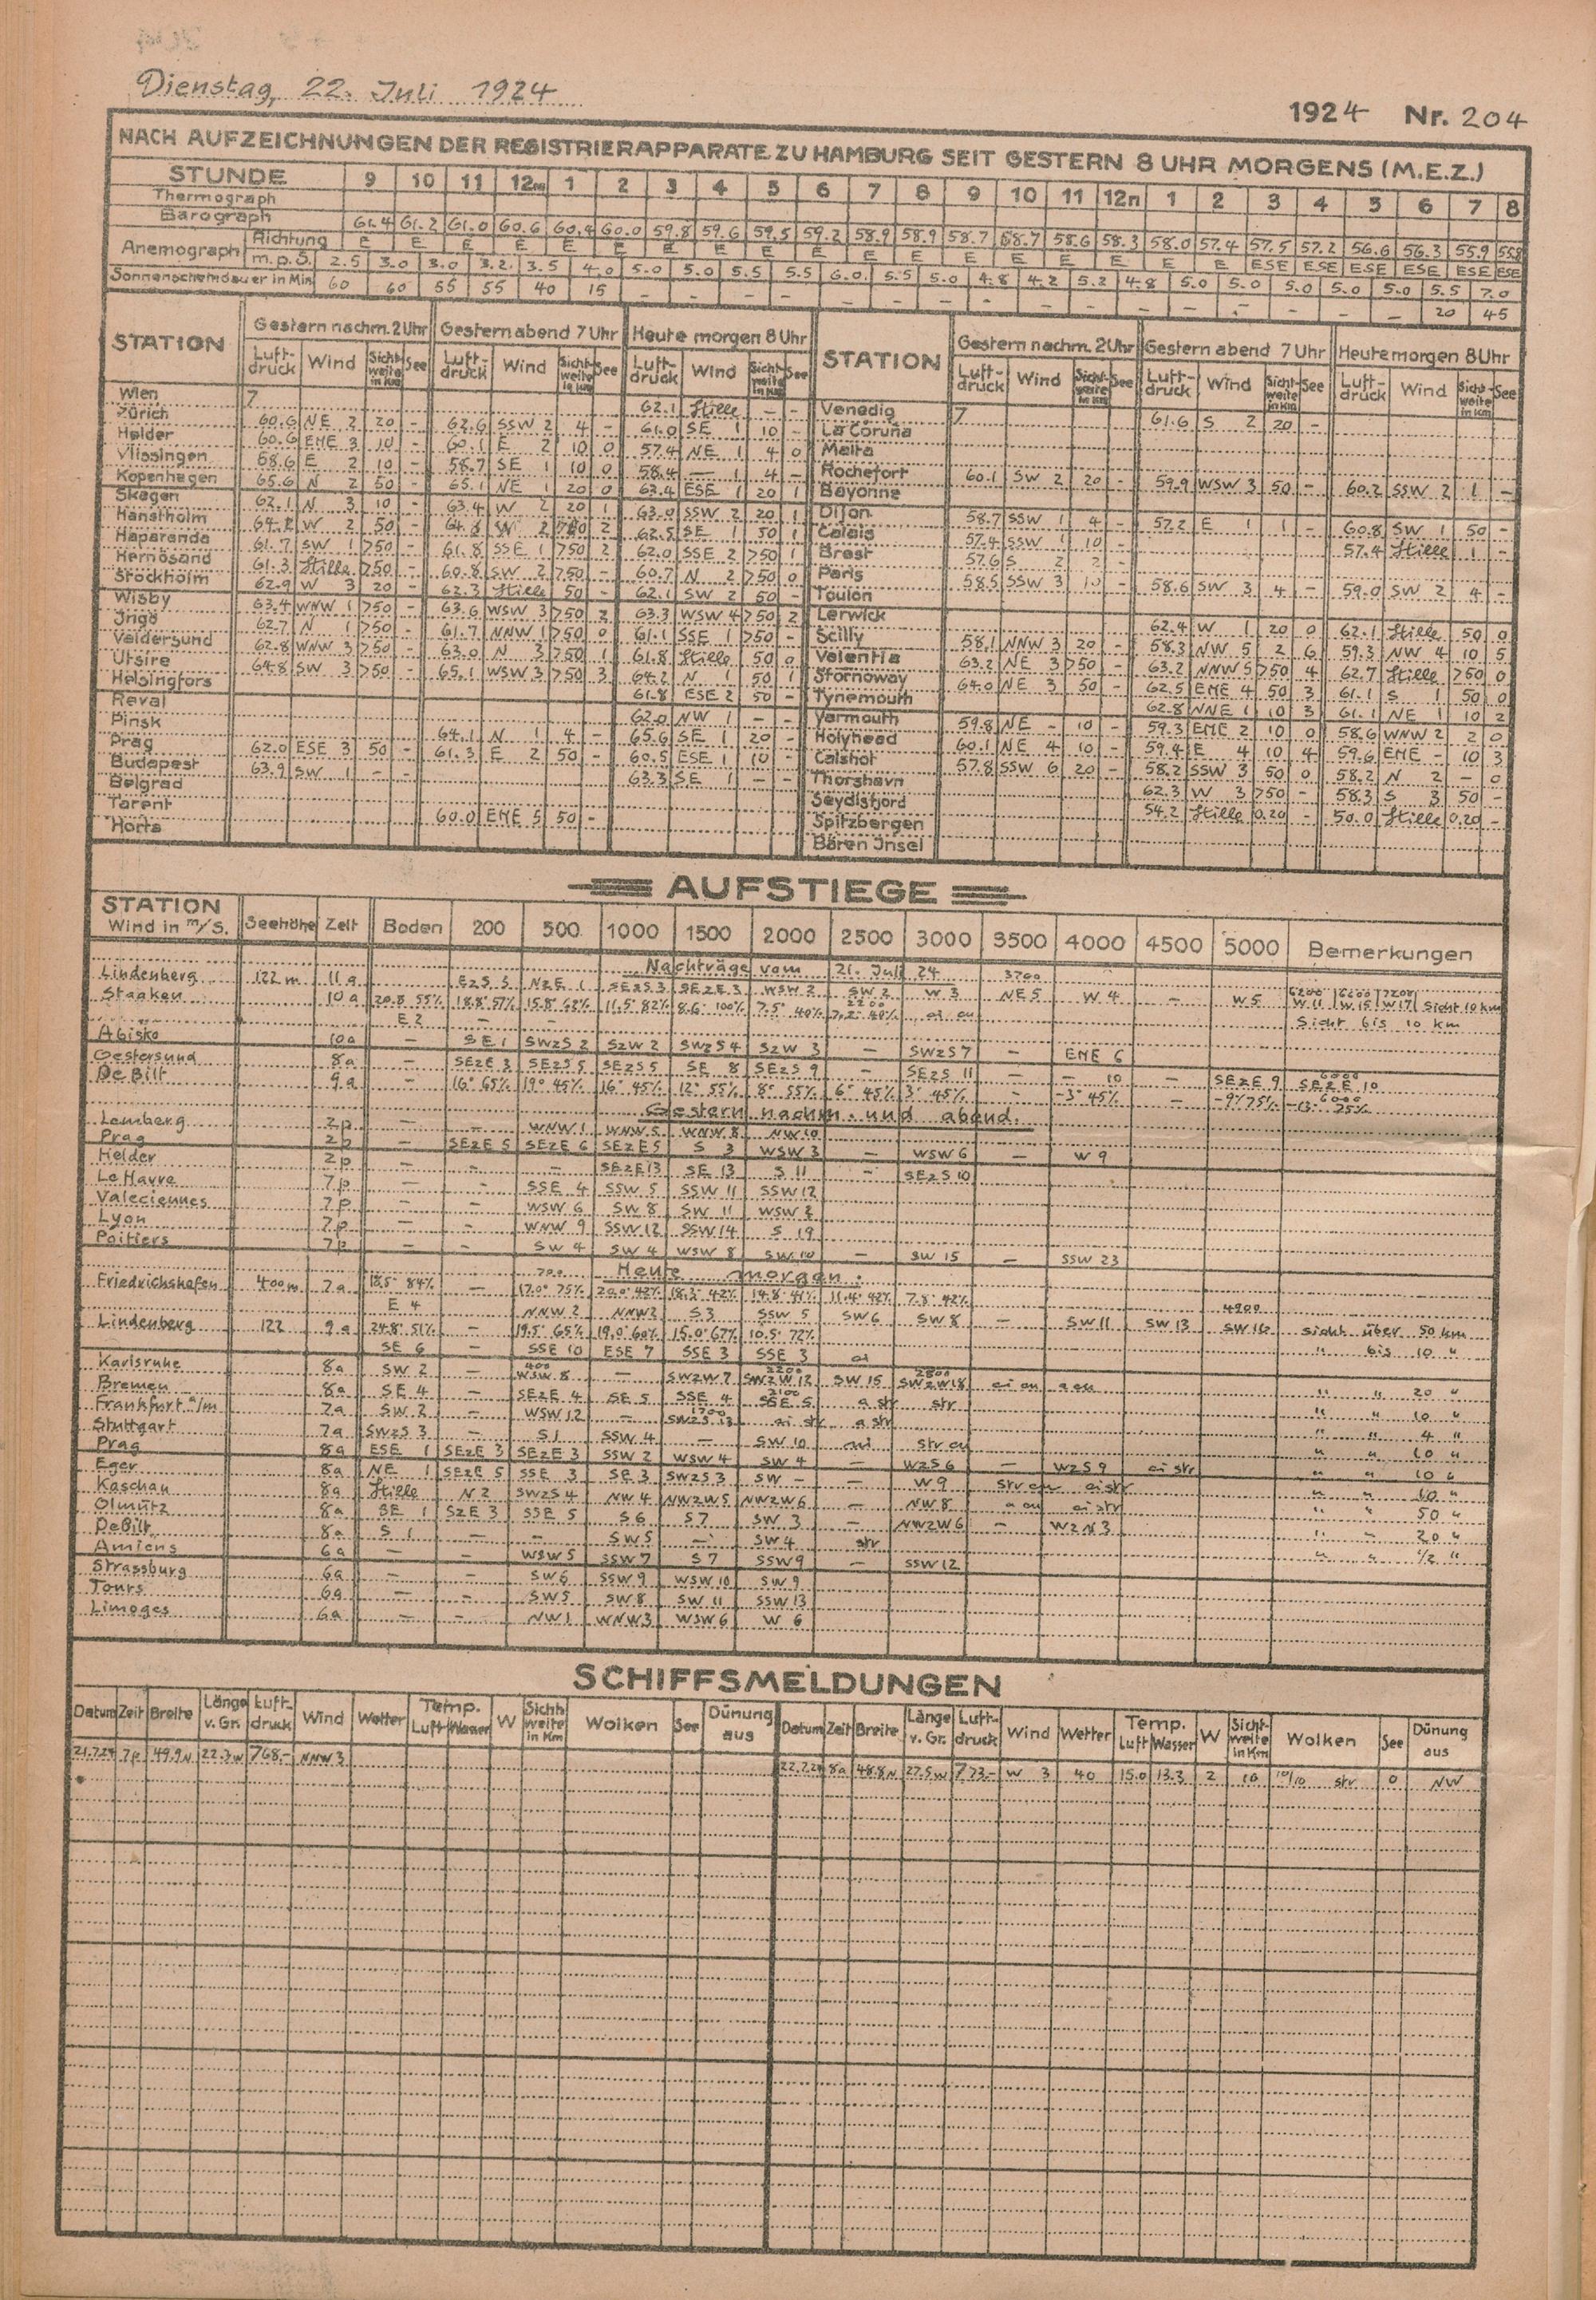 Dienstag, 22. Juli 1924
1924 Nr. 204
NACH AUFZEICHNUNGEN DER REGISTRIERAPPARATE ZU HAMBURG SEIT GESTERN 8 UHR MORGENS (M.E.Z.)
STUNDE 9 10 11 12m 1 2 3 4 5 6 7 8 9 10 11 12n 1 2 3 4 5 6 7 8
Thermograph
Barograph 61.4 61.2 61.0 60.6 60.4 60.0 59.8 59.6 59.5 59.2 58.9 58.9 58.7 58.7 58.6 58.3 58.0 57.4 57.5 57.2 56.6 56.3 55.9 55.8
Anemograph Richtung E E E E E E E E E E E E E E E E E E ESE ESE ESE ESE ESE ESE
m.p.S. 2.5 3.0 3.0 3.2 3.5 4.0 5.0 5.0 5.5 5.5 6.0 5.5 5.0 4.8 4.2 5.2 4.8 5.0 5.0 5.0 5.0 5.0 5.5 7.0
Sonnenscheindauer in Min 60 60 55 55 40 15 - - - - - - - - - - - - - - - - 20 45
STATION Gestern nachm. 2 Uhr Gestern abend 7 Uhr Heute morgen 8 Uhr STATION Gestern nachm. 2 Uhr Gestern abend 7 Uhr Heute morgen 8 Uhr
Luftdruck Wind Sichtweite in km See Luftdruck Wind Sichtweite in km See Luftdruck Wind Sichtweite in km See Luftdruck Wind Sichtweite in km See Luftdruck Wind Sichtweite in km See Luftdruck Wind Sichtweite in km See
Wien 7 62.1 Stille - - Venedig 7 61.6 S 2 20 -
Zürich 60.6 NE 2 20 - 62.6 SSW 2 4 - 61.0 SE 1 10 - La Coruña
Helder 60.6 ENE 3 10 - 60.1 E 2 10 0 57.4 NE 1 4 0 Malta
Vlissingen 58.6 E 2 10 - 58.7 SE 1 10 0 58.4 - 1 4 - Rochefort 60.1 SW 2 20 - 59.9 WSW 3 50 - 60.2 SSW 2 1 -
Kopenhagen 65.6 N 2 50 - 65.1 NE 1 20 0 63.4 ESE 1 20 1 Bayonne
Skagen 62.1 N 3 10 - 63.4 W 2 20 1 63.0 SSW 2 20 1 Dijon 58.7 SSW 1 4 - 57.2 E 1 1 - 60.8 SW 1 50 -
Hanstholm 64.2 W 2 50 - 2 62.5 SE 1 50 1 Calais 57.4 SSW 1 10 - 57.4 Stille 1 -
Haparanda 61.7 SW 1 >50 - 61.8 SSE 1 >50 2 62.0 SSE 2 >50 1 Brest 57.6 S 2 2 -
Hernösand 61.3 Stille >50 - 60.8 SW 2 >50 - 60.7 N 2 >50 0 Paris 58.5 SSW 3 10 - 58.6 SW 3 4 - 59.0 SW 2 4 -
Stockholm 62.9 W 3 20 - 62.3 Stille 50 - 62.1 SW 2 50 - Toulon
Wisby 63.4 WNW 1 >50 - 63.6 WSW 3 >50 2 63.3 WSW 4 >50 2 Lerwick 62.4 W 1 20 0 62.1 Stille 50 0
Ingö 62.7 N 1 >50 - 61.7 NNW 1 >50 0 61.1 SSE 1 >50 - Scilly 58.1 NNW 3 20 - 58.3 NW 5 2 6 59.3 NW 4 10 5
Valdersund 62.8 WNW 3 >50 - 63.0 N 3 >50 1 61.8 Stille 50 0 Valentia 63.2 NE 3 >50 - 63.2 NNW 5 >50 4 62.7 Stille >50 0
Utsire 64.8 SW 3 >50 - 65.1 WSW 3 >50 3 64.2 N 1 50 1 Stornoway 64.0 NE 3 50 - 62.5 ENE 4 50 3 61.1 S 1 50 0
Helsingfors 61.8 ESE 2 50 - Tynemouth 62.8 NNE 1 10 3 61.1 NE 1 10 2
Reval 62.0 NW 1 - - Yarmouth 59.8 NE - 10 - 59.3 ENE 2 10 0 58.6 WNW 2 2 0
Pinsk 64.1 N 1 4 - 65.6 SE 1 20 - Holyhead 60.1 NE 4 10 - 59.4 E 4 10 4 59.6 ENE - 10 3
Prag 62.0 ESE 3 50 - 61.3 E 2 50 - 60.5 ESE 1 10 - Calshot 57.8 SSW 6 20 - 58.2 SSW 3 50 0 58.2 N 2 - 0
Budapest 63.9 SW 1 - - 63.3 SE 1 - - Thorshavn 62.3 W 3 >50 - 58.3 S 3 50 -
Belgrad Seydisfjord 54.2 Stille 0.20 - 50.0 Stille 0.20 -
Tarent 60.0 ENE 5 50 - Spitzbergen
Horta Bären Insel
AUFSTIEGE
STATION Wind in m/s. Seehöhe Zeit Boden 200 500 1000 1500 2000 2500 3000 3500 4000 4500 5000 Bemerkungen
Nachträge vom 21. Juli 24 3700
Lindenberg 122 m 11a EzS 5 NzE 1 SEzS 3 SEzE 3 WSW 2 SW 2 W 3 NE 5 W 4 - W 5 6200 W 11 6600 W 15 7200 W 17 Sicht 10 km
Staaken 10a 20.8° 55% 18.8° 57% 15.8° 62% 11.5° 82% 8.6° 100% 7.5° 40% 2200 7.2° 40% ci cu Sicht bis 10 km
E 2 - -
Abisko 10a - SE 1 SWzS 2 SzW 2 SWzS 4 SzW 3 - SWzS 7 - ENE 6
Oestersund 8a - SEzE 3 SEzS 5 SEzS 5 SE 8 SEzS 9 - SEzS 11 - - 10 - SEzE 9 6000 SEzE 10
De Bilt 9a - 16° 65% 19° 45% 16° 45% 12° 55% 8° 55% 6° 45% 3° 45% - -3° 45% - -9° 75% 6000 -13° 75%
Gestern nachm. und abend.
Lemberg 2p - - WNW 1 WNW 5 WNW 8 NW 10
Prag 2p - SEzE 5 SEzE 6 SEzE 5 S 3 WSW 3 - WSW 6 - W 9
Helder 2p - - - SEzE 13 SE 13 S 11 - SEzS 10
Le Havre 7p - - SSE 4 SSW 5 SSW 11 SSW 12
Valeciennes 7p - - WSW 6 SW 8 SW 11 WSW 2
Lyon 7p - - WNW 9 SSW 12 SSW 14 S 19
Poitiers 7p - - SW 4 SW 4 WSW 8 SW 10 - SW 15 - SSW 23
700 Heute morgen.
Friedrichshafen 400m 7a 18.5° 84% - 17.0° 75% 20.0° 42% 18.3° 42% 14.8° 41% 11.4° 42% 7.8° 42%
E 4 NNW 2 NNW 2 S 3 SSW 5 SW 6 SW 8 - SW 11 SW 13 4900 SW 16 Sicht über 50 km
Lindenberg 122 9a 24.8° 51% - 19.5° 65% 19.0° 60% 15.0° 67% 10.5° 72%
SE 6 - SSE 10 ESE 7 SSE 3 SSE 3 ci " bis 10 "
Karlsruhe 8a SW 2 - 400 WSW 8 - SWzW 7 2200 SWzW 12 SW 15 2800 SWzW 18 ci cu a cu " " 20 "
Bremen 8a SE 4 - SEzE 4 SE 5 SSE 4 2100 SSE 5 a str str " " 10 "
Frankfurt a/m 7a SW 2 - WSW 12 - 1700 SWzS 13 ci str a str " " 4 "
Stuttgart 7a SWzS 3 - S 1 SSW 4 - SW 10 ni str cu " " 10 "
Prag 8a ESE 1 SEzE 3 SEzE 3 SSW 2 WSW 4 SW 4 - WzS 6 - WzS 9 ci str " " 10 "
Eger 8a NE 1 SEzE 5 SSE 3 SE 3 SWzS 3 SW - - W 9 str cu ci str " " 10 "
Kaschau 8a Stille N 2 SWzS 4 NW 4 NWzW 5 NWzW 6 - NW 8 a cu ci str " " 50 "
Olmütz 8a SE 1 SzE 3 SSE 5 S 6 S 7 SW 3 - NWzW 6 - WzN 3 " " 20 "
De Bilt 8a S 1 - - SW 5 - SW 4 str " " 1/2 "
Amiens 6a - - WSW 5 SSW 7 S 7 SSW 9 - SSW 12
Strassburg 6a - - SW 6 SSW 9 WSW 10 SW 9
Tours 6a - - SW 5 SW 8 SW 11 SSW 13
Limoges 6a - - NW 1 WNW 3 WSW 6 W 6
SCHIFFSMELDUNGEN
Datum Zeit Breite Länge v. Gr. Luftdruck Wind Wetter Temp. Luft Wasser W Sichtweite in Km Wolken See Dünung aus Datum Zeit Breite Länge v. Gr. Luftdruck Wind Wetter Temp. Luft Wasser W Sichtweite in Km Wolken See Dünung aus
21.7.24 7p 49.9N 22.3W 768.- NNW 3 22.7.24 8a 48.8N 27.5W 773.- W 3 40 15.0 13.3 2 10 10/10 str 0 NW